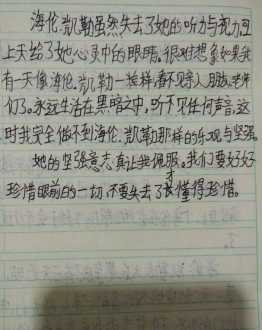 海伦.凯勒虽然失去了她的听力与视力但
上天给了她心灵中的眼睛。很难想象如果我
有一天像海伦.凯勒一样看不见亲人朋友老师
们了。永远生活在黑暗之中,听不见任何声音。这
时我完全做不到海伦.凯勒那样的乐观与坚强。
她的坚强意志真让我佩服。我们要好好
珍惜眼前的一切,不要失去了才懂得珍惜。